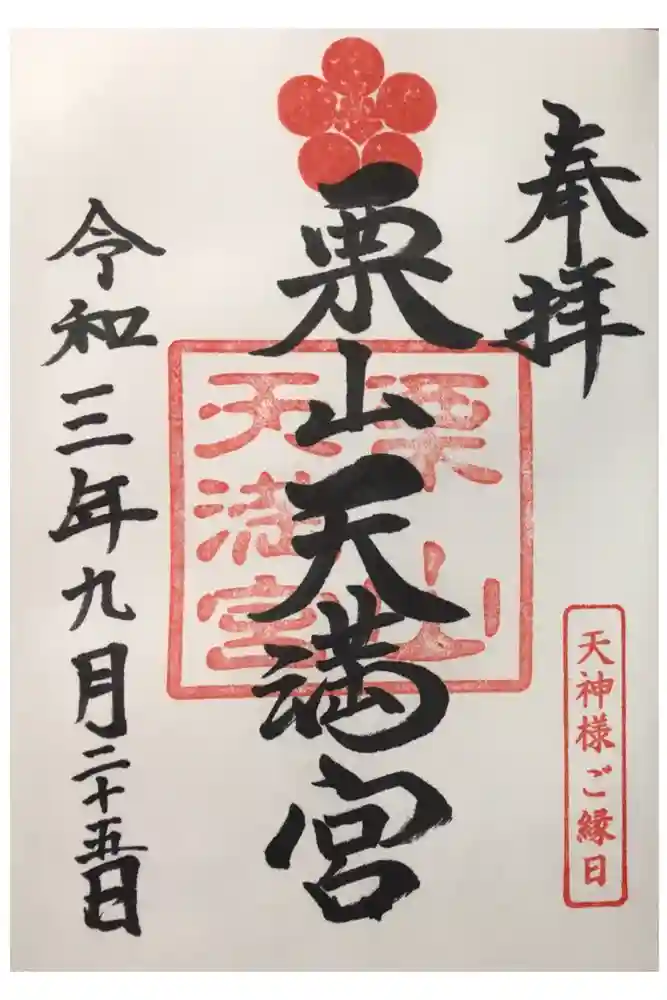 奉拝
栗山天満宮
栗山
天満宮
令和三年九月二十五日
天神様ご縁日